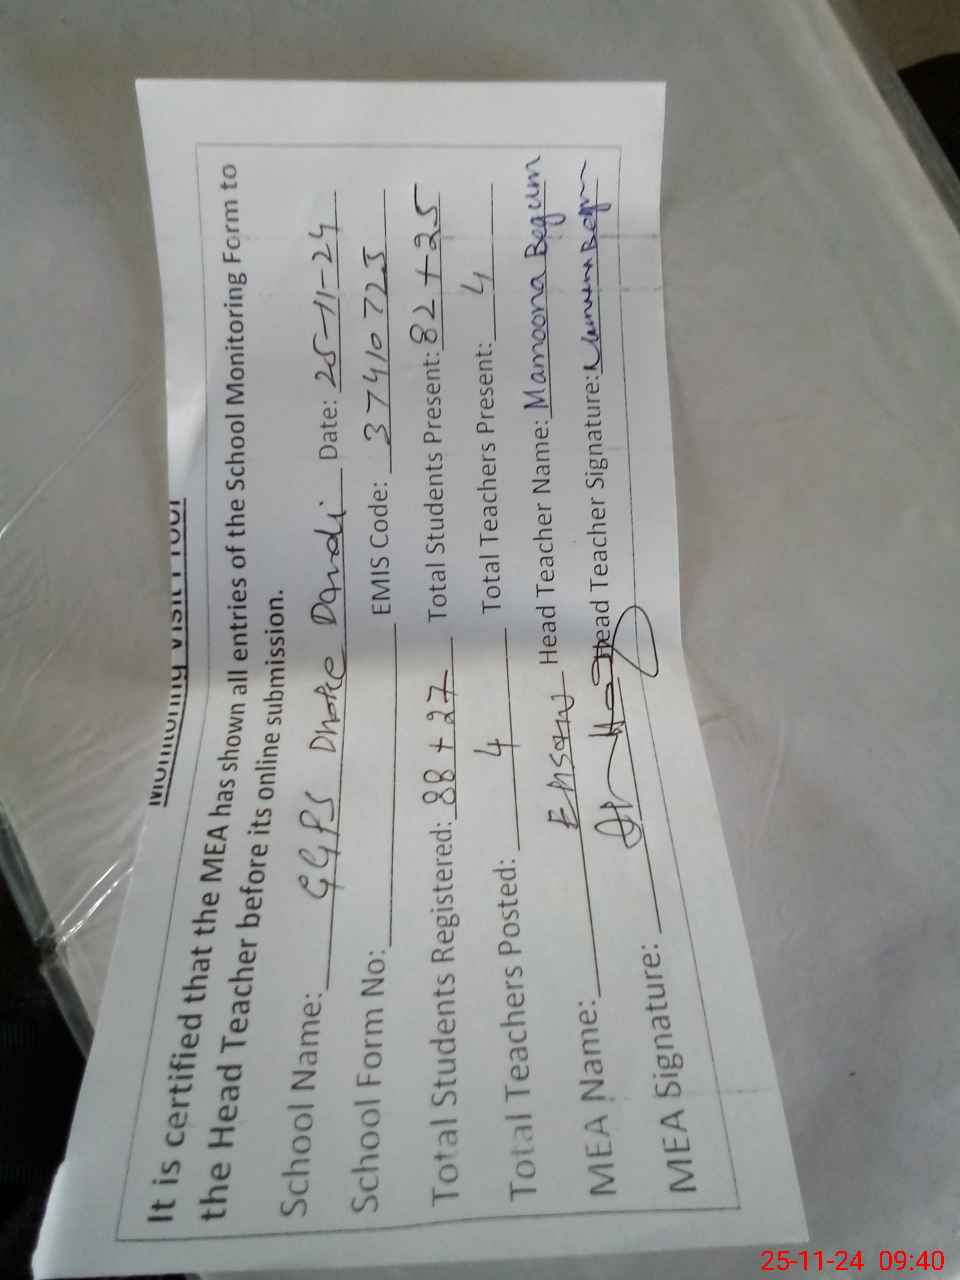 Monitoring Visit Tool
It is certified that the MEA has shown all entries of the School Monitoring Form to
the Head Teacher before its online submission.
School Name: GGPS Dhoke Dandi Date: 25-11-24
School Form No: EMIS Code: 37410723
Total Students Registered: 88 + 27 Total Students Present: 82 + 25
Total Teachers Posted: 4 Total Teachers Present: 4
MEA Name: Head Teacher Name: Mamoona Begum
MEA Signature: Head Teacher Signature: Mamoona Begum
25-11-24 09:40